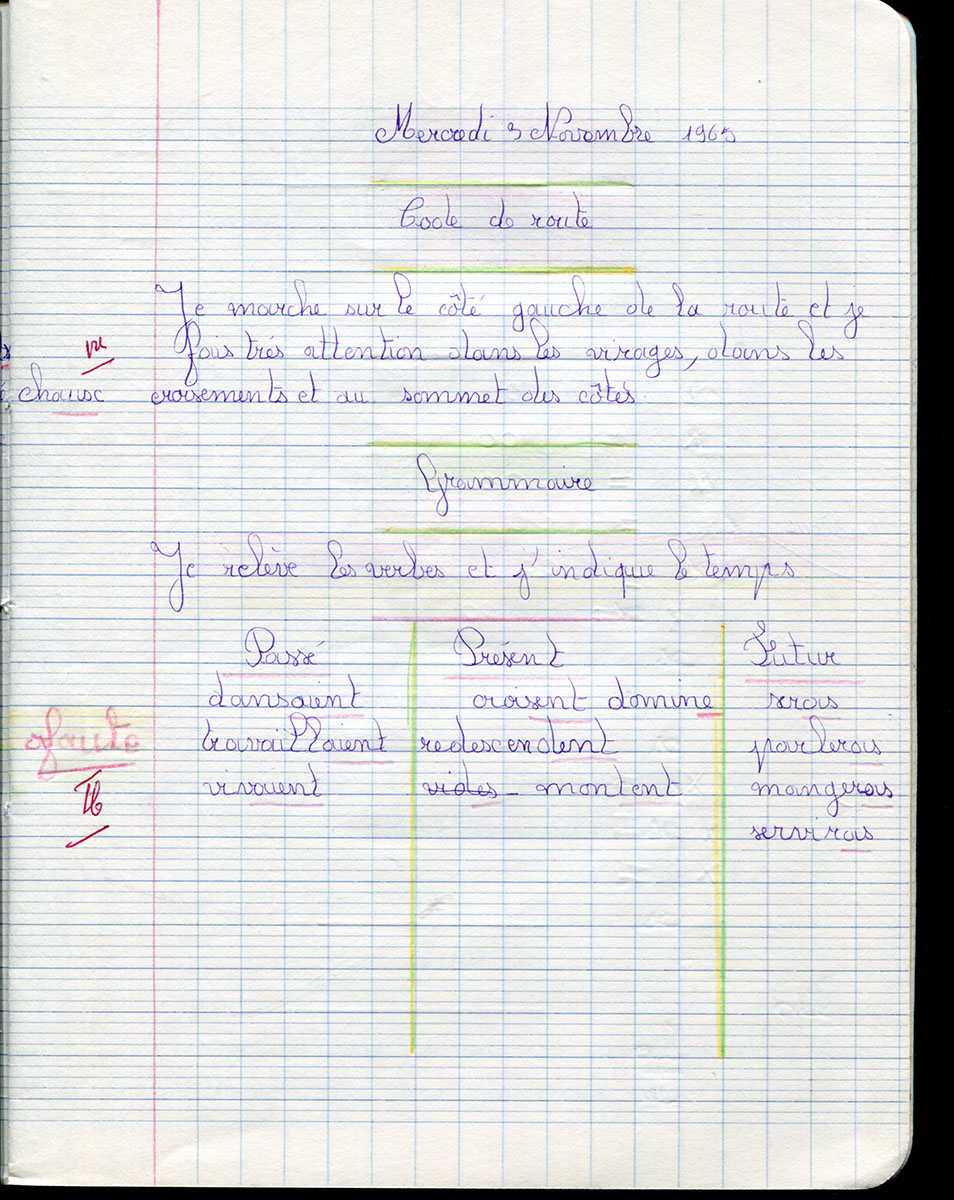 Mercredi 3 Novembre 1965
Code de route
Je marche sur le côté gauche de la route et je
fais très attention dans les virages, dans les
chausc croisements et au sommet des côtés.
Grammaire
Je relève les verbes et j'indique le temps
Passé Présent Futur
dansaient croisent domine serais
travaillaient redescendent parlerais
vivaient vides - montent mangerais
servirais
0 faute
TB